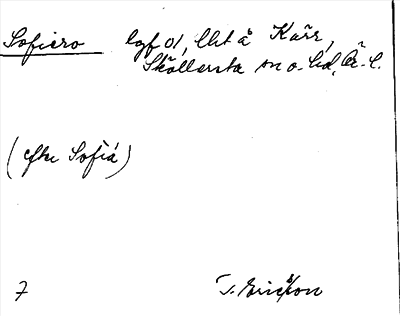 Sofiero lgf o/, lht å Kärr,
Sköllersta sn o. hd, Ör. l.
(efter Sofiá)
7 T. Ericsson